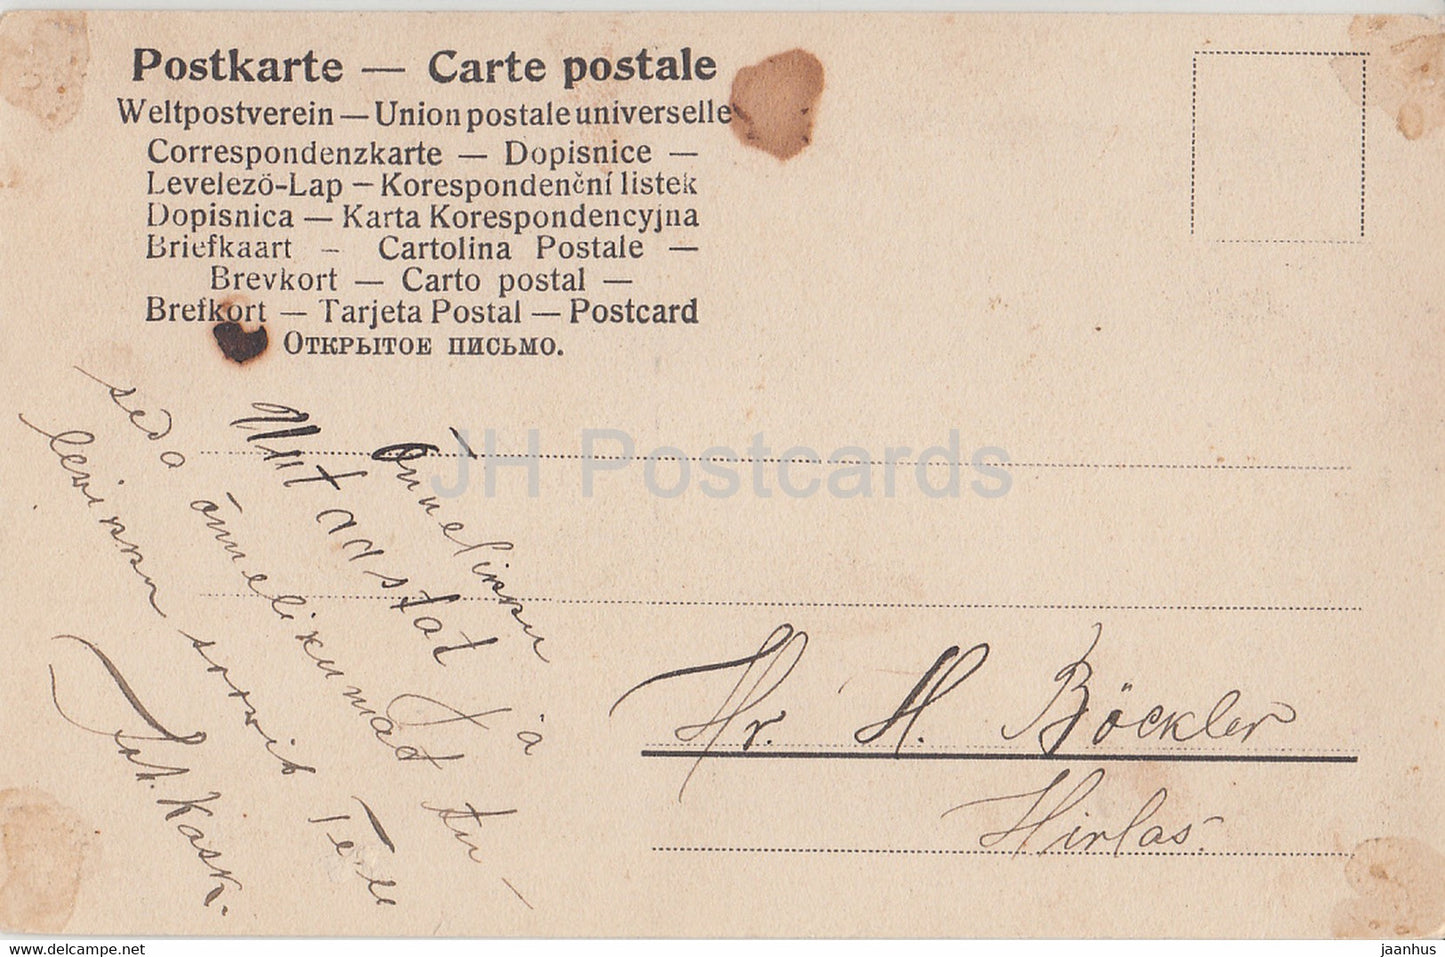 Postkarte — Carte postale
Weltpostverein — Union postale universelle
Correspondenzkarte — Dopisnice —
Levelezö-Lap — Korespondenční listek
Dopisnica — Karta Korespondencyjna
Briefkaart – Cartolina Postale —
Brevkort — Carto postal —
Brefkort — Tarjeta Postal — Postcard
Открытое письмо.
Õnnelikku ja
Uut aastat
seda õnnelikumad
lewikku soowib Teile
Joh. Kask.
Hr. H. Böckler
Hirlas.
JH Postcards
www.delcampe.net
jaanhus